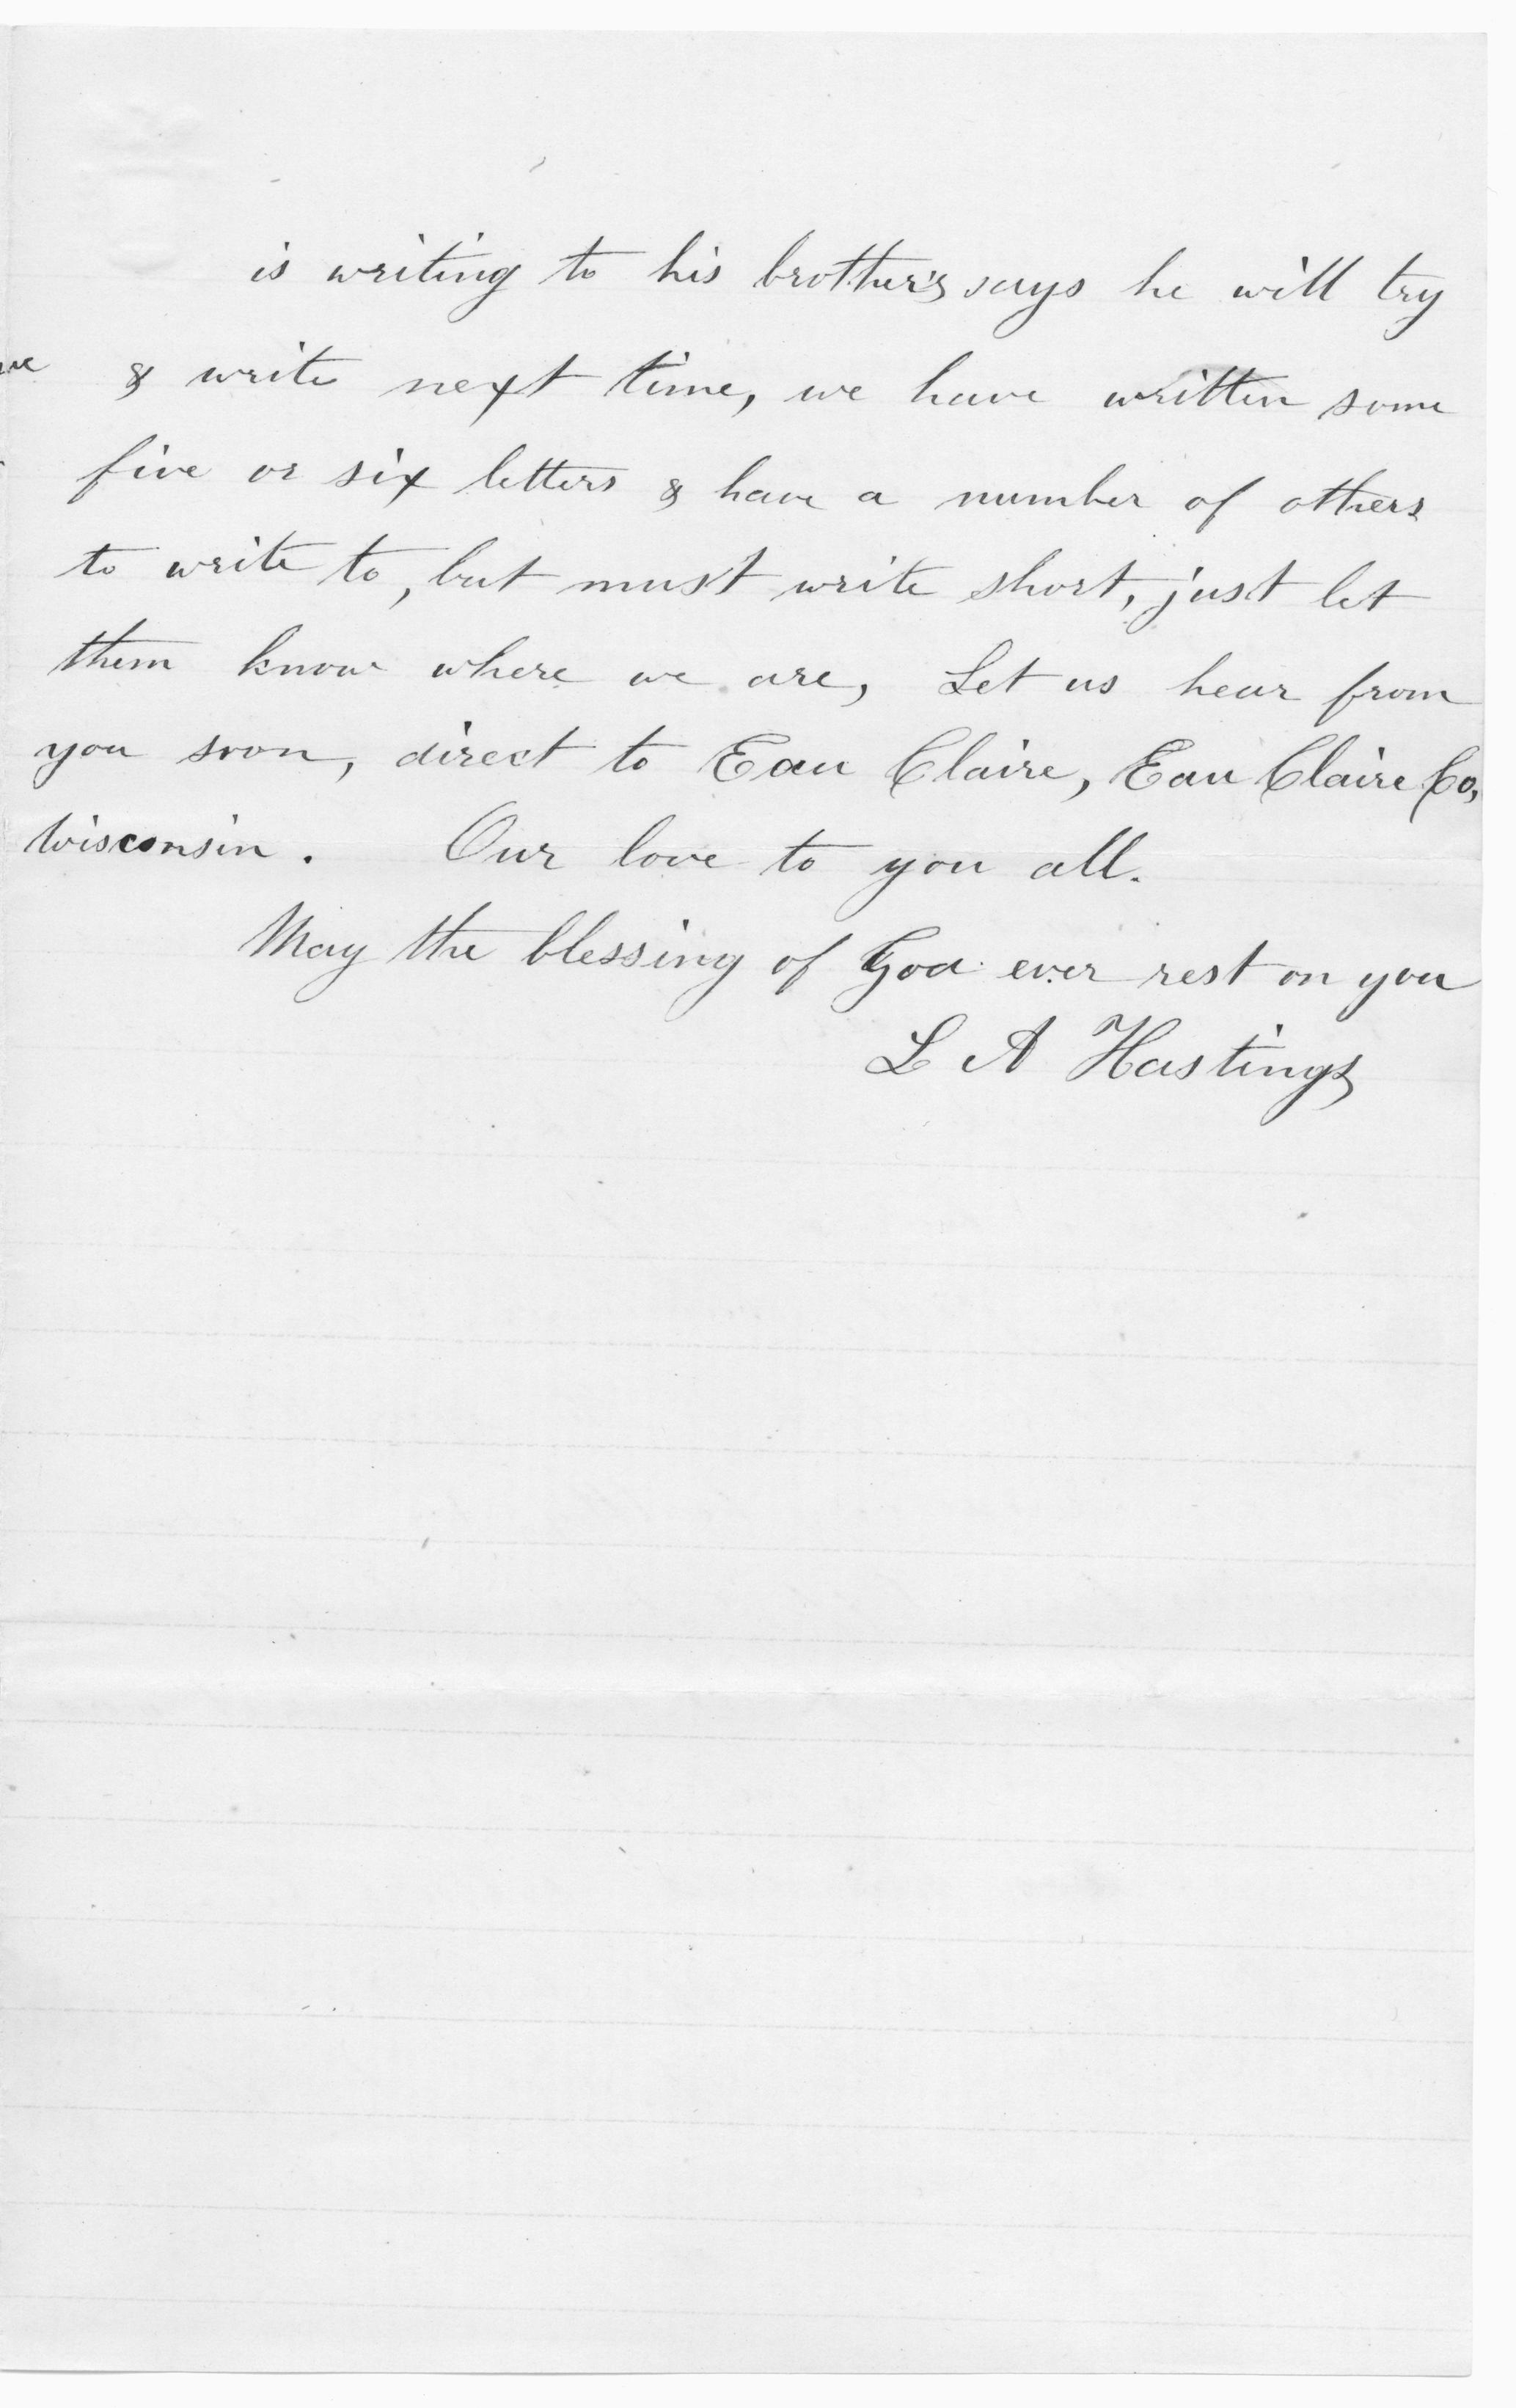 is writing to his brother's says he will try
& write next time, we have written some
five or six letters & have a number of others
to write to, but must write short, just let
them know where we are, Let us hear from
you soon, direct to Eau Claire, Eau Claire Co,
Wisconsin. Our love to you all.
May the blessing of God ever rest on you
L A Hastings